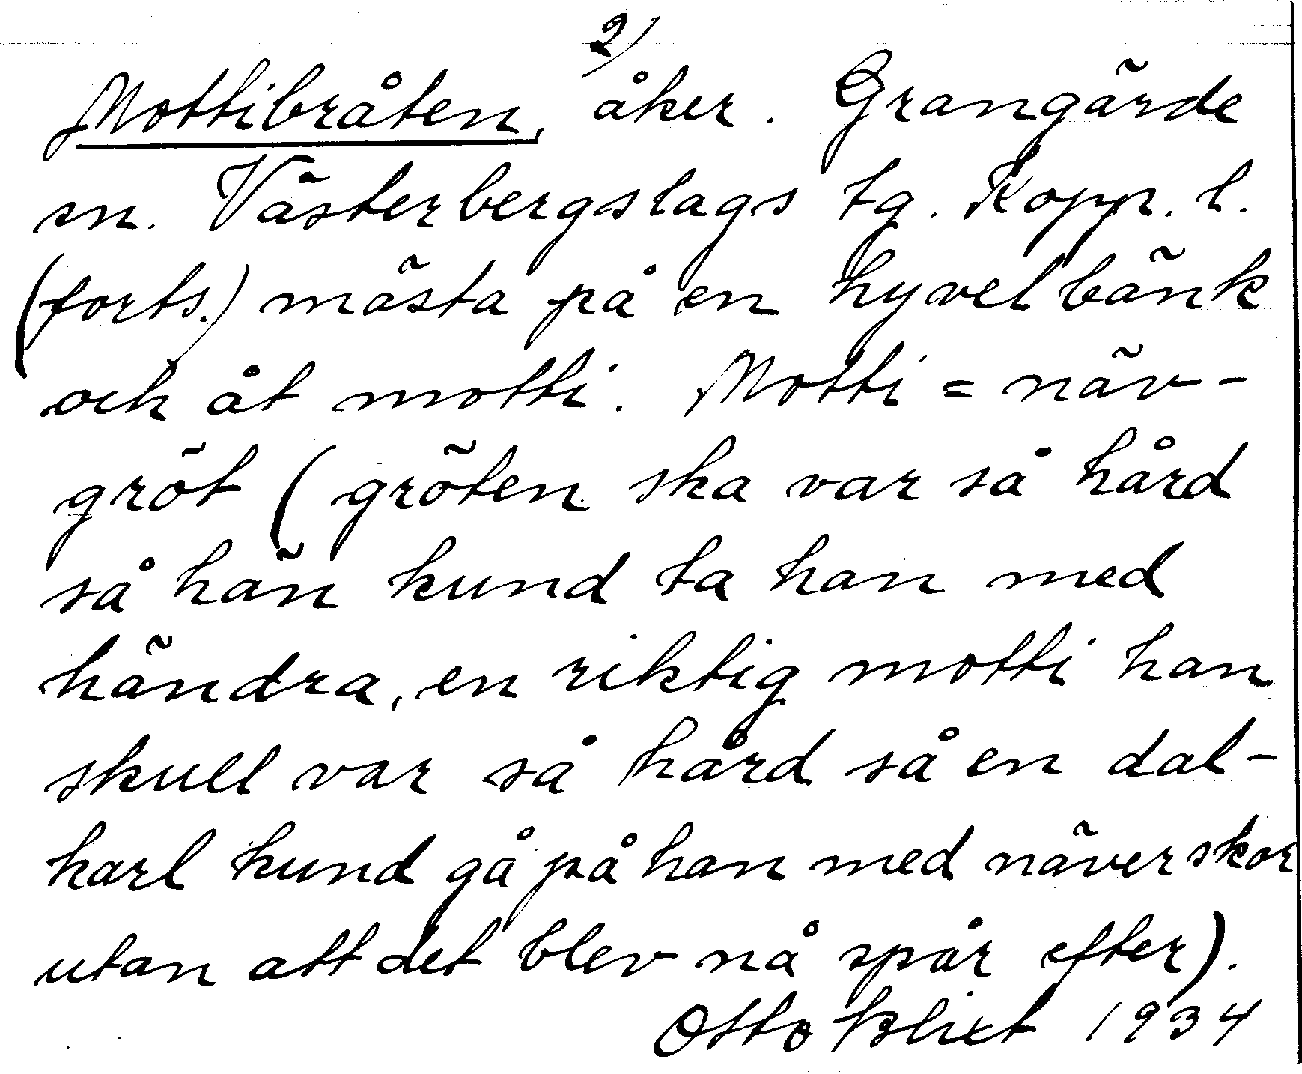 2/
Mottibråten, åker. Grangärde
sn. Västerbergslags tg. Kopp. l.
(forts.) mästa på en hyvelbänk
och åt motti. Motti = näv-
gröt (gröten ska var så hård
så hän kund ta han med
händra, en riktig motti han
skull var så hård så en dal-
karl kund gå på han med näverskor
utan att det blev nå spår efter).
Otto Blixt 1934